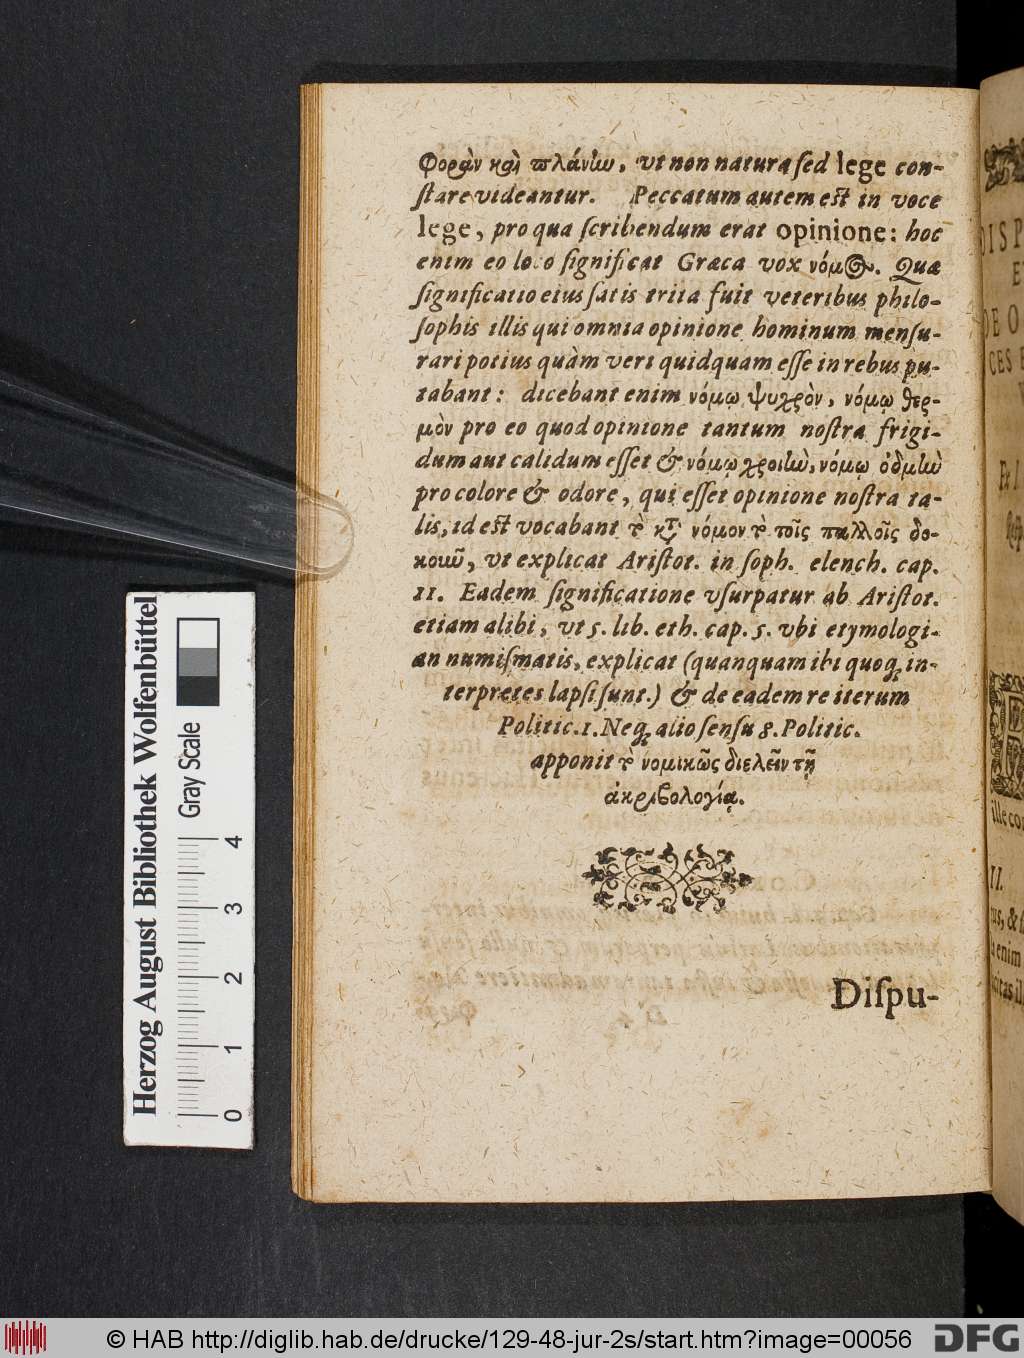 φορὰν καὶ πλάνην, vt non natura ſed lege con-
ſtare videantur. Peccatum autem eſt in voce
lege, pro qua ſcribendum erat opinione: hoc
enim eo loco ſignificat Græca vox νόμος. Quæ
ſignificatio eius ſatis trita fuit veteribus philo-
ſophis illis qui omnia opinione hominum menſu-
rari potius quàm veri quidquam eſſe in rebus pu-
tabant: dicebant enim νόμῳ ψυχρὸν, νόμῳ θερ-
μὸν pro eo quod opinione tantum noſtra frigi-
dum aut calidum eſſet & νόμῳ χροιὼ, νόμῳ ὀδμὼ
pro colore & odore, qui eſſet opinione noſtra ta-
lis, id eſt vocabant τὸ κτ νόμον τὸ τοῖς πολλοῖς δο-
κοιῶ, vt explicat Ariſtot. in ſoph. elench. cap.
11. Eadem ſignificatione vſurpatur ab Ariſtot.
etiam alibi, vt 5. lib. eth. cap. 5. vbi etymologi-
an numiſmatis, explicat (quanquam ibi quoq; in-
terpretes lapſi ſunt.) & de eadem re iterum
Politic. 1. Neq; alio ſenſu 8. Politic.
apponit τὸ νομικῶς διελεῖν τῇ
ἀκριβολογίᾳ.
Diſpu-
DISP
E
DE O
CES
V
II.
Herzog August Bibliothek Wolfenbüttel
Gray Scale
0 1 2 3 4
© HAB http://diglib.hab.de/drucke/129-48-jur-2s/start.htm?image=00056
DFG